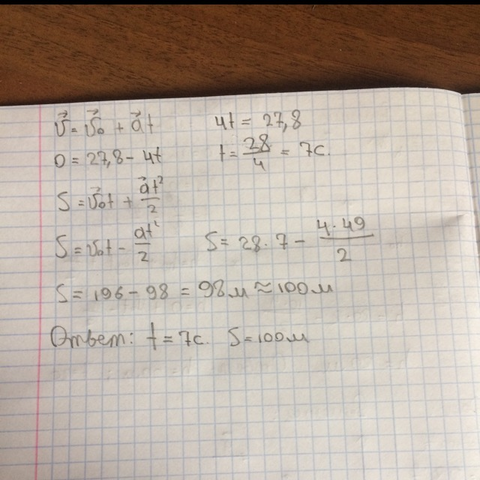 v⃗ = v⃗₀ + a⃗t    4t = 27,8
0 = 27,8 - 4t    t = 28/4 = 7с.
S = v⃗₀t + a⃗t²/2
S = v₀t - at²/2    S = 28·7 - 4·49/2
S = 196 - 98 = 98м ≈ 100м
Ответ: t = 7с. S = 100м